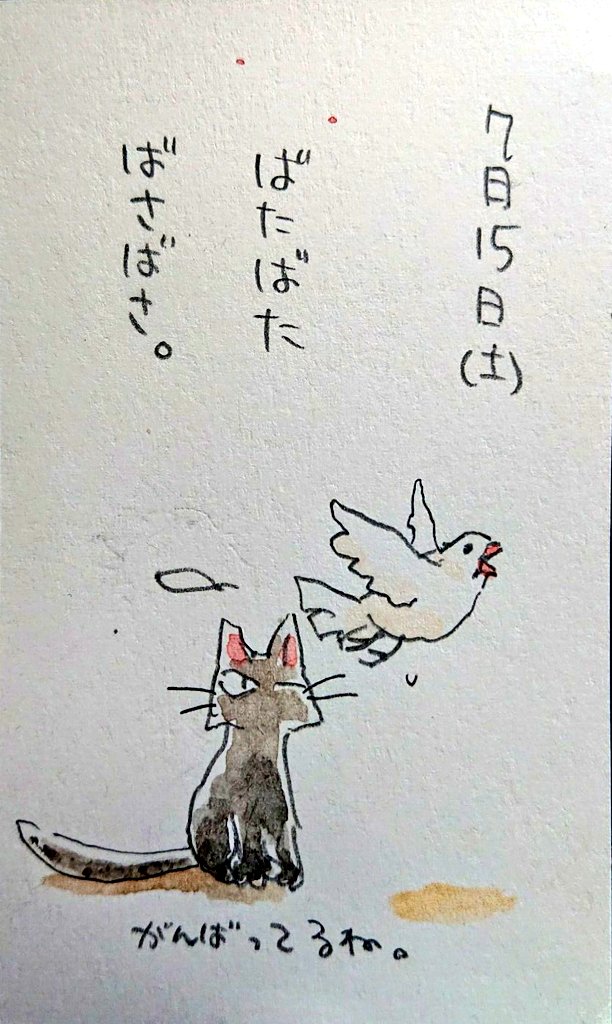 7月15日(土)
ばたばた
ばさばさ。
がんばってるね。